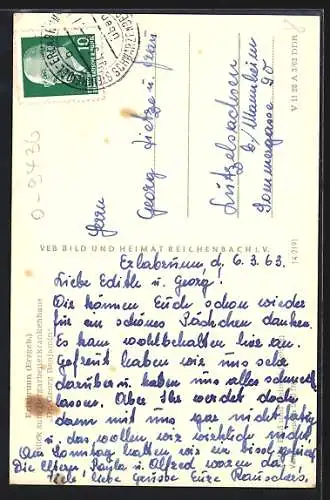 Herrn
Georg Tietze u. Frau
Lützelsachsen
b/ Mannheim
Sommergasse 50
10
V 11 28 A 3/62 DDR
0-9436
VEB BILD UND HEIMAT REICHENBACH I. V.
Erlabrunn (Erzgeb.)
Blick zum Bergarbeiterkrankenhaus
Erlabrunn, d. 6.3.63.
Liebe Edith u. Georg!
Wir können Euch schon wieder
für ein schönes Päckchen danken.
Es kam wohlbehalten hier an.
Gefreut haben wir uns sehr
darüber u. haben uns alles schmecken
lassen. Aber Ihr werdet doch
damit mit uns gar nicht fertig
u. das wollen wir wirklich nicht.
Am Sonntag hatten wir ein bissel
Die Eltern, u. Alfred waren da.
Viele liebe Grüsse Eure Rauschers.